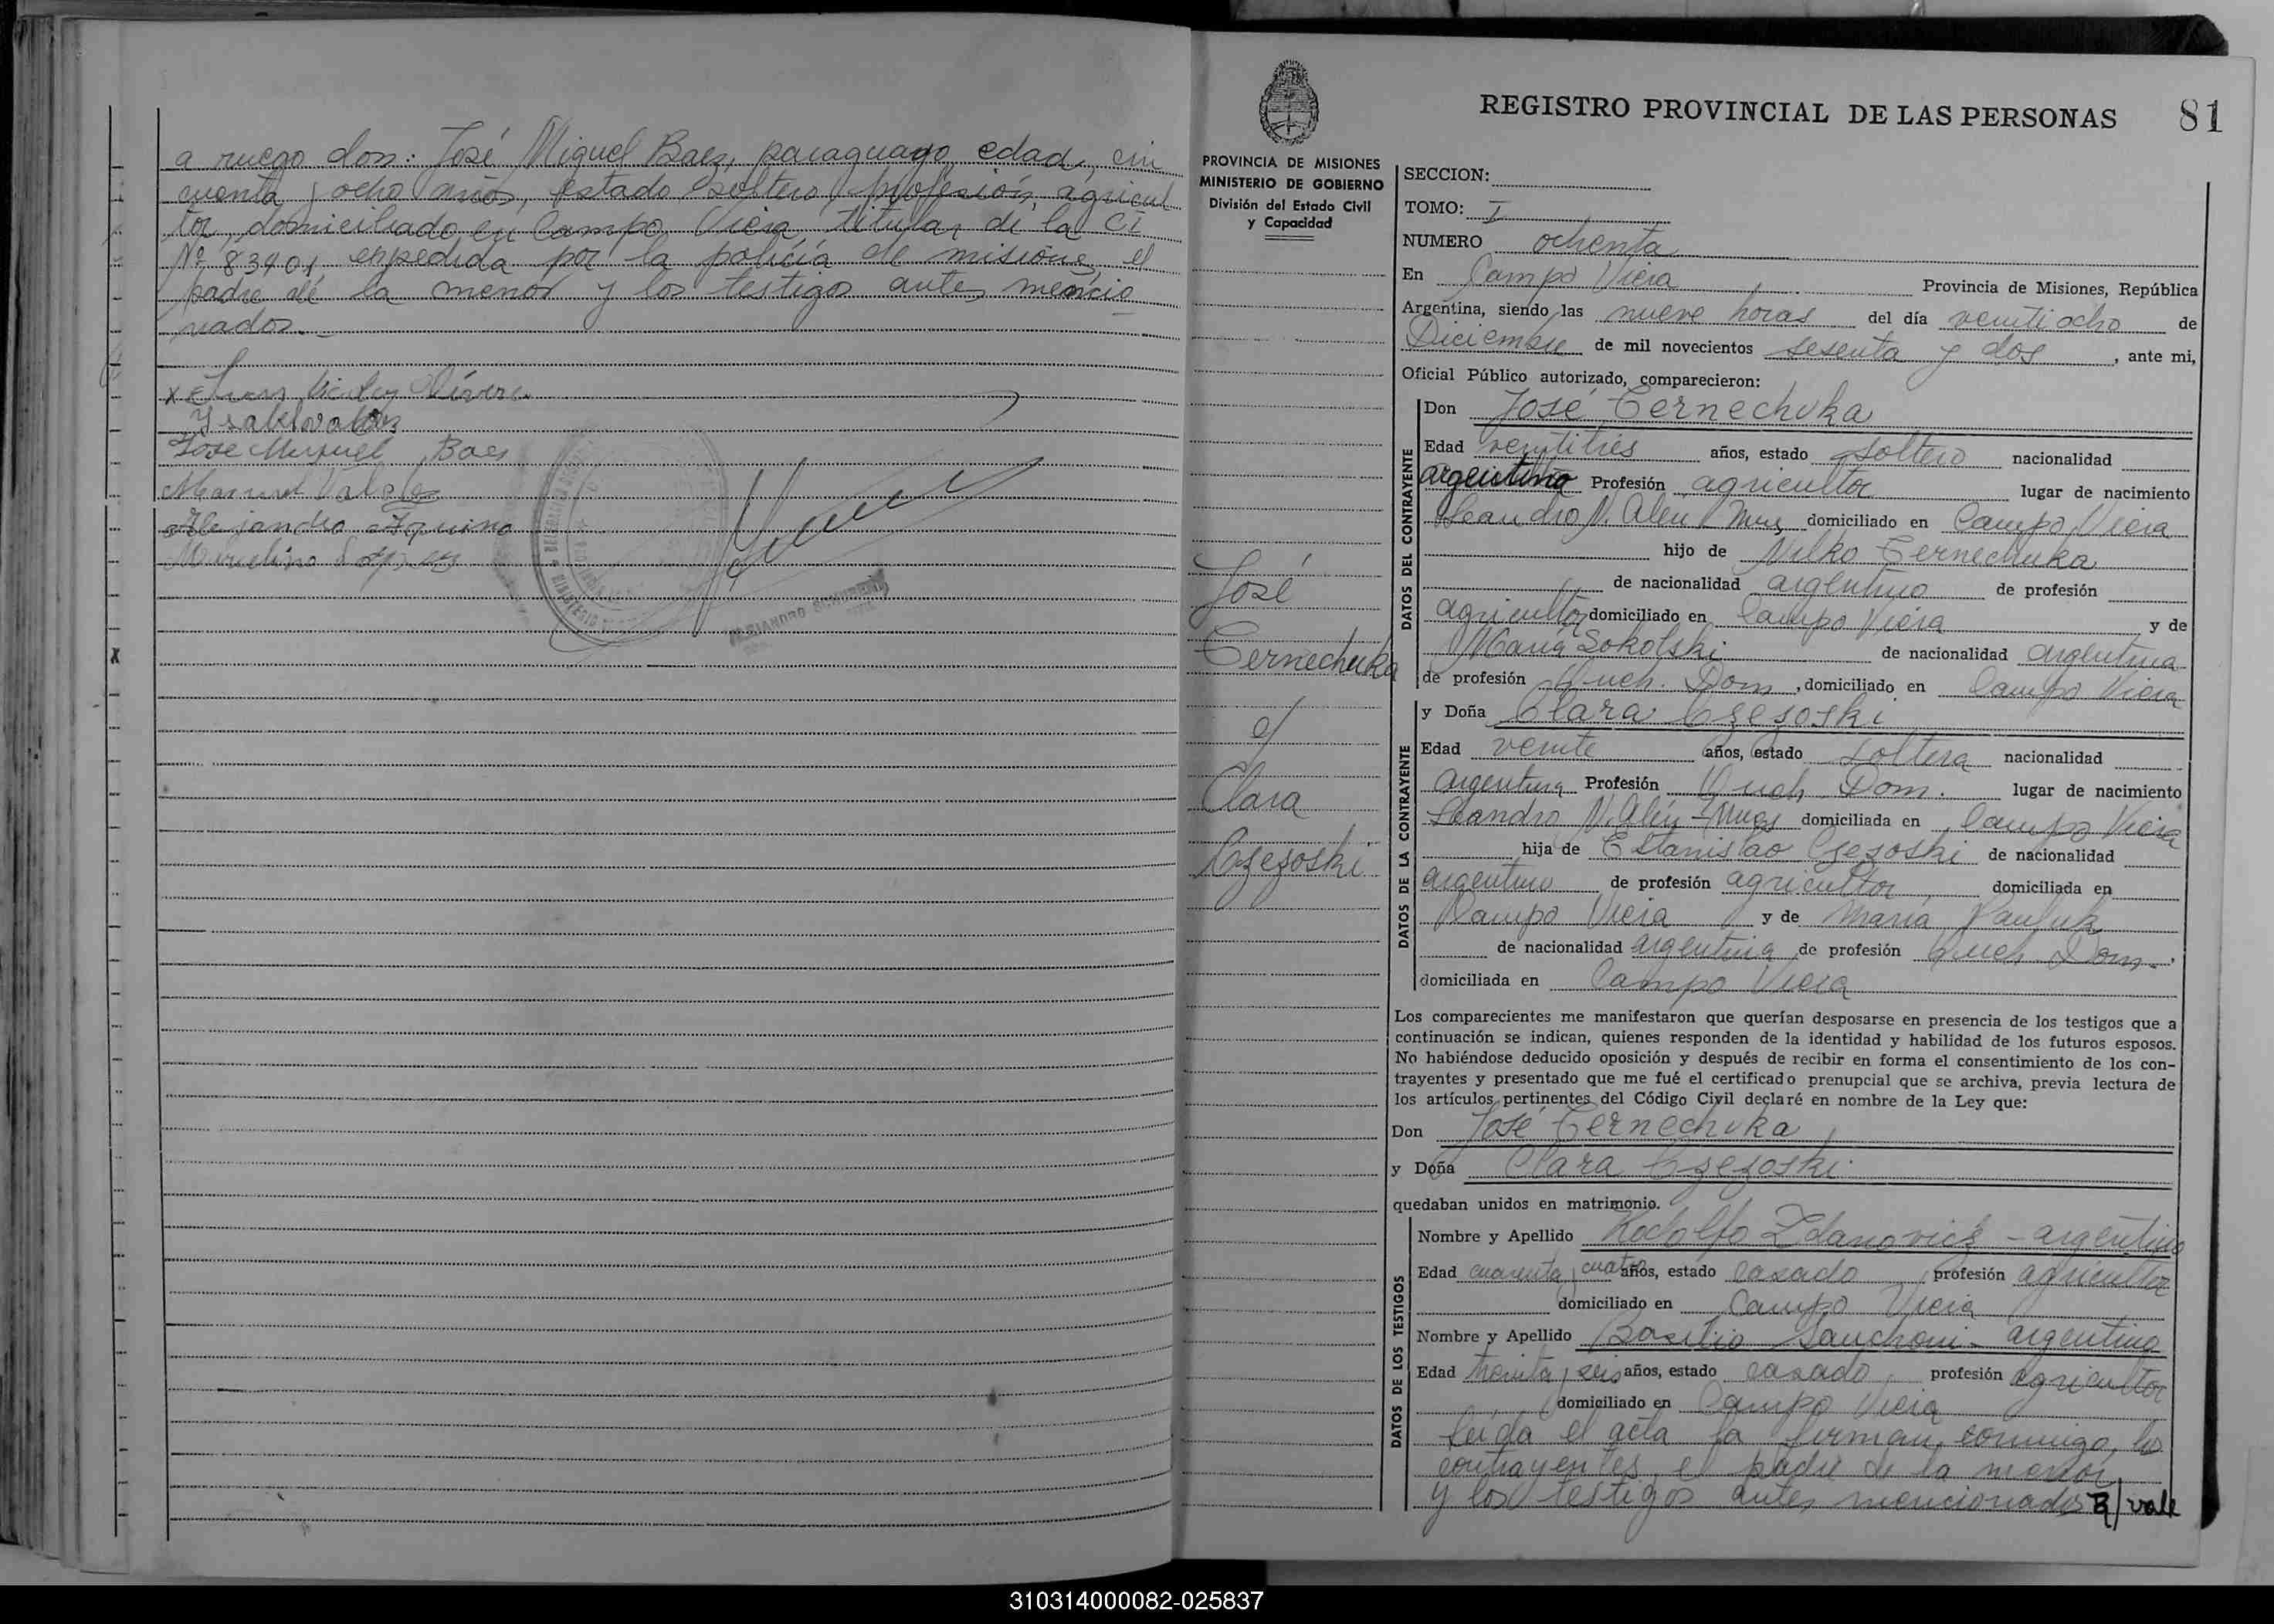 a ruego don: José Miguel Baez, paraguayo, edad, cin
cuenta y ocho años, estado soltero, profesión, agricul
tor, domiciliado en Campo Viera, titular de la CI
Nº 83401 expedida por la policía de misiones, el
padre de la menor y los testigos antes mencio
nados.-
José Miguel Baes
Alejandro Aquino
REGISTRO PROVINCIAL DE LAS PERSONAS 81
PROVINCIA DE MISIONES
MINISTERIO DE GOBIERNO
División del Estado Civil
y Capacidad
José
Cernechuka
c/
Clara
Czezoski
SECCION:
TOMO: I
NUMERO ochenta
En Campo Viera Provincia de Misiones, República
Argentina, siendo las nueve horas del día veintiocho de
Diciembre de mil novecientos sesenta y dos, ante mi,
Oficial Público autorizado, comparecieron:
DATOS DEL CONTRAYENTE
Don José Cernechuka
Edad veintitres años, estado soltero nacionalidad
argentino Profesión agricultor lugar de nacimiento
Leandro N. Alem Mnes domiciliado en Campo Viera
hijo de Cernechuka
de nacionalidad argentino de profesión
agricultor domiciliado en Campo Viera y de
María Sokolski de nacionalidad argentina
de profesión Queh. Dom, domiciliado en Campo Viera
DATOS DE LA CONTRAYENTE
y Doña Clara Czezoski
Edad veinte años, estado soltera nacionalidad
argentina Profesión Queh Dom. lugar de nacimiento
Leandro N. Alem - Mnes domiciliada en Campo Viera
hija de Estanislao Czezoski de nacionalidad
argentino de profesión agricultor domiciliada en
Campo Viera y de María
de nacionalidad argentina de profesión Queh Dom.
domiciliada en Campo Viera
Los comparecientes me manifestaron que querían desposarse en presencia de los testigos que a
continuación se indican, quienes responden de la identidad y habilidad de los futuros esposos.
No habiéndose deducido oposición y después de recibir en forma el consentimiento de los con-
trayentes y presentado que me fué el certificado prenupcial que se archiva, previa lectura de
los artículos pertinentes del Código Civil declaré en nombre de la Ley que:
Don José Cernechuka
y Doña Clara Czezoski
quedaban unidos en matrimonio.
DATOS DE LOS TESTIGOS
Nombre y Apellido Rodolfo Zdanovicz - argentino
Edad cuarenta y cuatro años, estado casado profesión agricultor
domiciliado en Campo Viera
Nombre y Apellido Basilio - argentino
Edad treinta y seis años, estado casado profesión agricultor
domiciliado en Campo Viera
Leída el acta la firman, conmigo, los
contrayentes, el padre de la menor,
y los testigos antes mencionados R/ vale
310314000082-025837